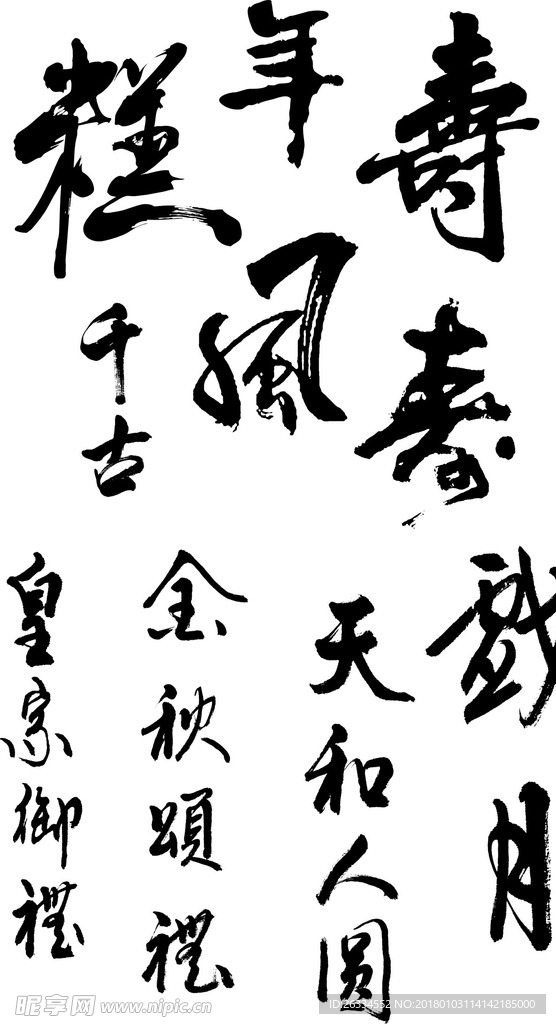 年
糕
壽
風
千古
寿
皇家御禮
金秋頌禮
天和人圆
戲月
昵享网 www.nipic.cn
ID:26334552 NO:20180103114142185000